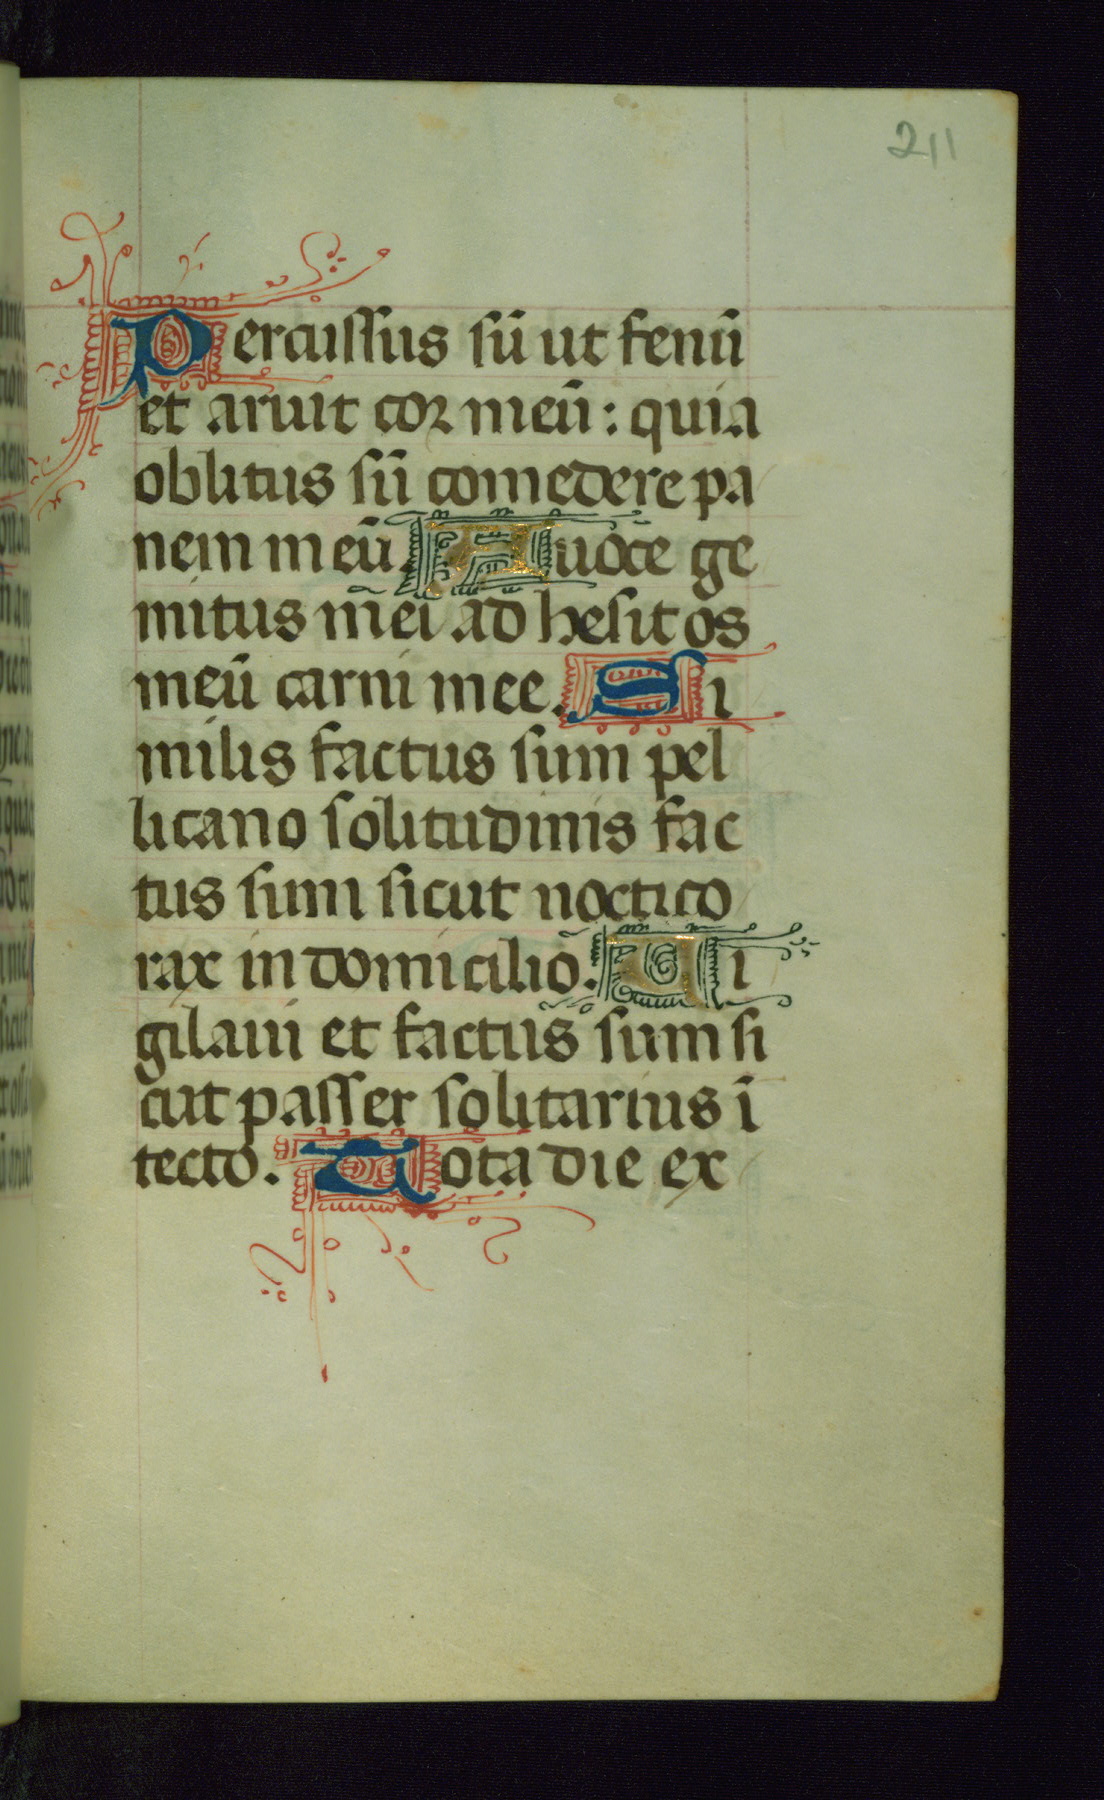 211
Percussus sū ut fenū
et aruit cor meū : quia
oblitus sū comedere pa
nem meū. A uoce ge
mitus mei adhesit os
meū carni mee. Si
milis factus sum pel
licano solitudinis fac
tus sum sicut noctico
rax in domicilio. Ui
gilaui et factus sum si
cut passer solitarius ī
tecto. Tota die ex